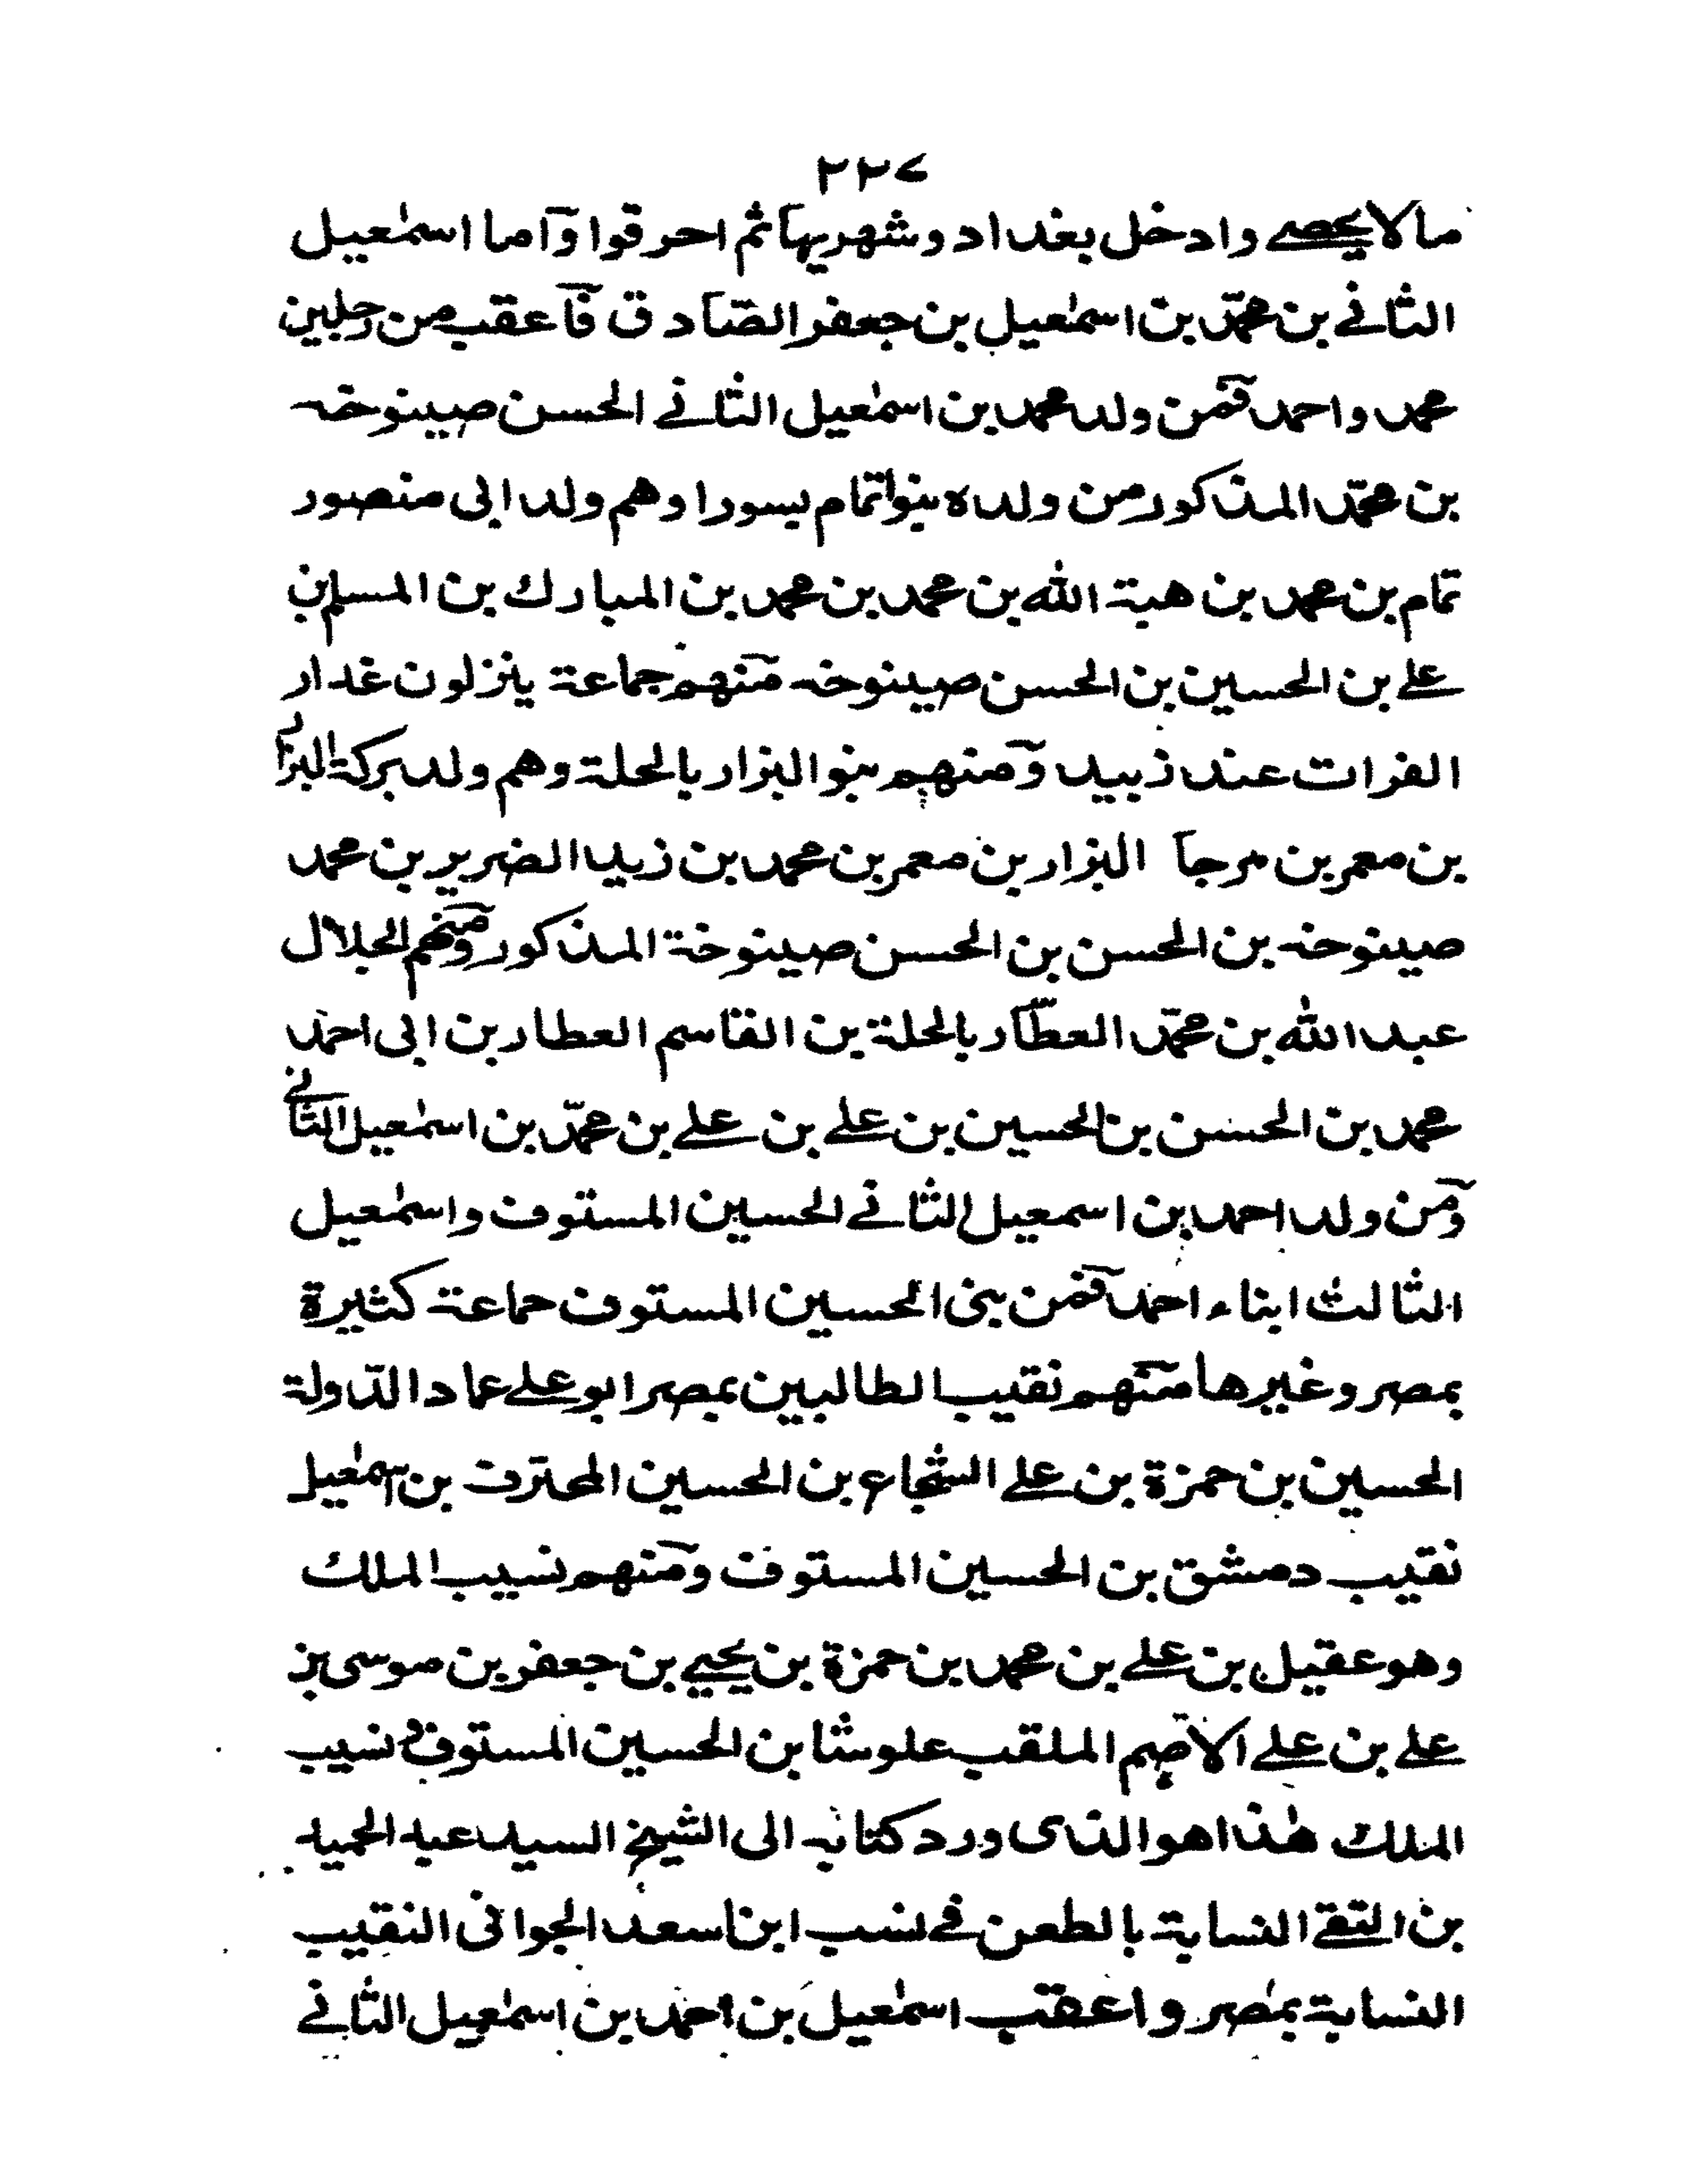 ٢٢٧
ما لا يحصے وادخل بغداد وشهر بها ثم احرقوا وآما اسمٰعيل
الثانے بن محمّد بن اسمٰعيل بن جعفر الصّادق فآعقب من رجلين
محمد واحمد فمن ولد محمد بن اسمٰعيل الثانے الحسن صبينوخه
بن محمّد المذكور من ولده بنو اتمام بسورا وهم ولد ابى منصور
تمام بن محمد بن هبة الله بن محمد بن محمد بن المبارك بن المسلم بن
علے بن الحسين بن الحسن صبينوخه منهم جماعة ينزلون غدار
الفرات عند زبيد ومنهم بنو البزار بالحلة وهم ولد بركة البزار
بن معمر بن مرجا البزار بن معمر بن محمد بن زيد الضرير بن محمد
صينوخه بن الحسن بن الحسن صينوخة المذكور ومنهم الجلال
عبد الله بن محمّد العطّار بالحلة بن القاسم العطار بن ابى احمد
محمد بن الحسن بن الحسين بن علے بن علے بن محمّد بن اسمٰعيل الثانے
ومن ولد احمد بن اسمعيل الثانے الحسين المستوف واسمٰعيل
الثالث ابناء احمد فمن بنى الحسين المستوف جماعة كثيرة
بمصر وغيرها منهم نقيب الطالبين بمصر ابو علے عماد الدّولة
الحسين بن حمزة بن علے الشجاع بن الحسين المحترف بن اسمٰعيل
نقيب دمشق بن الحسين المستوف ومنهم نسيب الملك
وهو عقيل بن علے بن محمد بن حمزة بن يحيے بن جعفر بن موسى بن
علے بن علے الاصم الملقب علوشا بن الحسين المستوف ونسيب
الملك هٰذا هو الذى ورد كتابه الى الشيخ السيد عبد الحميد
بن التقے النسابة بالطعن فے نسب ابن اسعد الجوانى النقيب
النسابة بمصر واعقب اسمٰعيل بن احمد بن اسمٰعيل الثانے